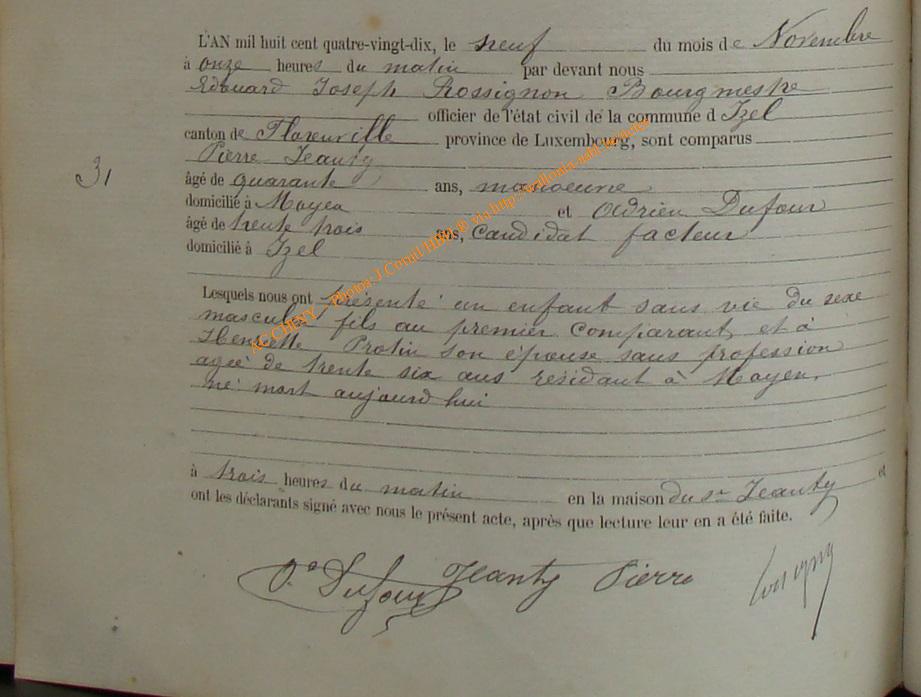 L'AN mil huit cent quatre-vingt-dix, le neuf du mois de Novembre
à onze heures du matin par devant nous
Edouard Joseph Rossignon Bourgmestre
officier de l'état civil de la commune d Izel
canton de Florenville province de Luxembourg, sont comparus
Pierre Jeanty
31
âgé de quarante ans, manoeuvre
domicilié à Moyen et Adrien Dufour
âgé de trente trois ans, candidat facteur
domicilié à Izel
Lesquels nous ont présenté un enfant sans vie du sexe
masculin fils au premier comparant, et à
Henriette Protin son épouse sans profession
agée de trente six ans résidant à Moyen,
né mort aujourd'hui
à trois heures du matin en la maison du sr Jeanty et
ont les déclarants signé avec nous le présent acte, après que lecture leur en a été faite.
Dufour Jeanty Pierre
AGCCHINY - Photos J Conul HBD ® via http://wallonia-asbl